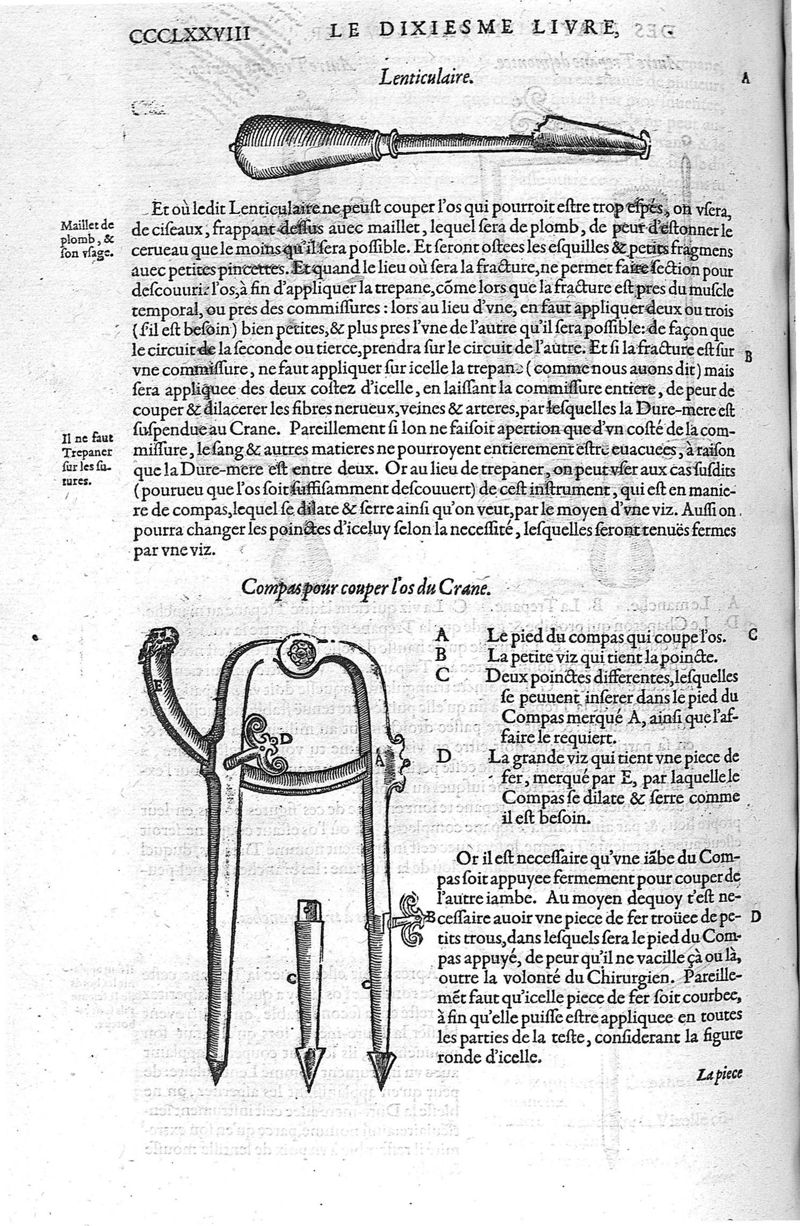 CCCLXXVIII LE DIXIESME LIVRE,
Lenticulaire.
A
Et où ledit Lenticulaire ne peust couper l'os qui pourroit estre trop espés, on vsera,
de ciseaux, frappant dessus auec maillet, lequel sera de plomb, de peur d'estonner le
cerueau que le moins qu'il sera possible. Et seront ostees les esquilles & petits fragmens
auec petites pincettes. Et quand le lieu où sera la fracture, ne permet faire section pour
descouurir l'os, à fin d'appliquer la trepane, cõme lors que la fracture est pres du muscle
temporal, ou pres des commissures : lors au lieu d'vne, en faut appliquer deux ou trois
(s'il est besoin) bien petites, & plus pres l'vne de l'autre qu'il sera possible: de façon que
le circuit de la seconde ou tierce, prendra sur le circuit de l'autre. Et si la fracture est sur
vne commissure, ne faut appliquer sur icelle la trepane (comme nous auons dit) mais
sera appliquee des deux costez d'icelle, en laissant la commissure entiere, de peur de
couper & dilacerer les fibres nerueux, veines & arteres, par lesquelles la Dure-mere est
suspendue au Crane. Pareillement si lon ne faisoit apertion que d'vn costé de la com-
missure, le sang & autres matieres ne pourroyent entierement estre euacuees, à raison
que la Dure-mere est entre deux. Or au lieu de trepaner, on peut vser aux cas susdits
(pourueu que l'os soit suffisamment descouuert) de cest instrument, qui est en manie-
re de compas, lequel se dilate & serre ainsi qu'on veut, par le moyen d'vne viz. Aussi on
pourra changer les poinctes d'iceluy selon la necessité, lesquelles seront tenuës fermes
par vne viz.
Maillet de
plomb, &
son vsage.
B
Il ne faut
Trepaner
sur les su-
tures.
Compas pour couper l'os du Crane.
A Le pied du compas qui coupe l'os.
C
B La petite viz qui tient la poincte.
C Deux poinctes differentes, lesquelles
se peuuent inserer dans le pied du
Compas merqué A, ainsi que l'af-
faire le requiert.
D La grande viz qui tient vne piece de
fer, merqué par E, par laquelle le
Compas se dilate & serre comme
il est besoin.
E
D
A
B
C
C
Or il est necessaire qu'vne iãbe du Com-
pas soit appuyee fermement pour couper de
l'autre iambe. Au moyen dequoy t'est ne-
cessaire auoir vne piece de fer troüee de pe-
tits trous, dans lesquels sera le pied du Com-
pas appuyé, de peur qu'il ne vacille çà ou là,
outre la volonté du Chirurgien. Pareille-
mẽt faut qu'icelle piece de fer soit courbee,
à fin qu'elle puisse estre appliquee en toutes
les parties de la teste, considerant la figure
ronde d'icelle.
D
La piece